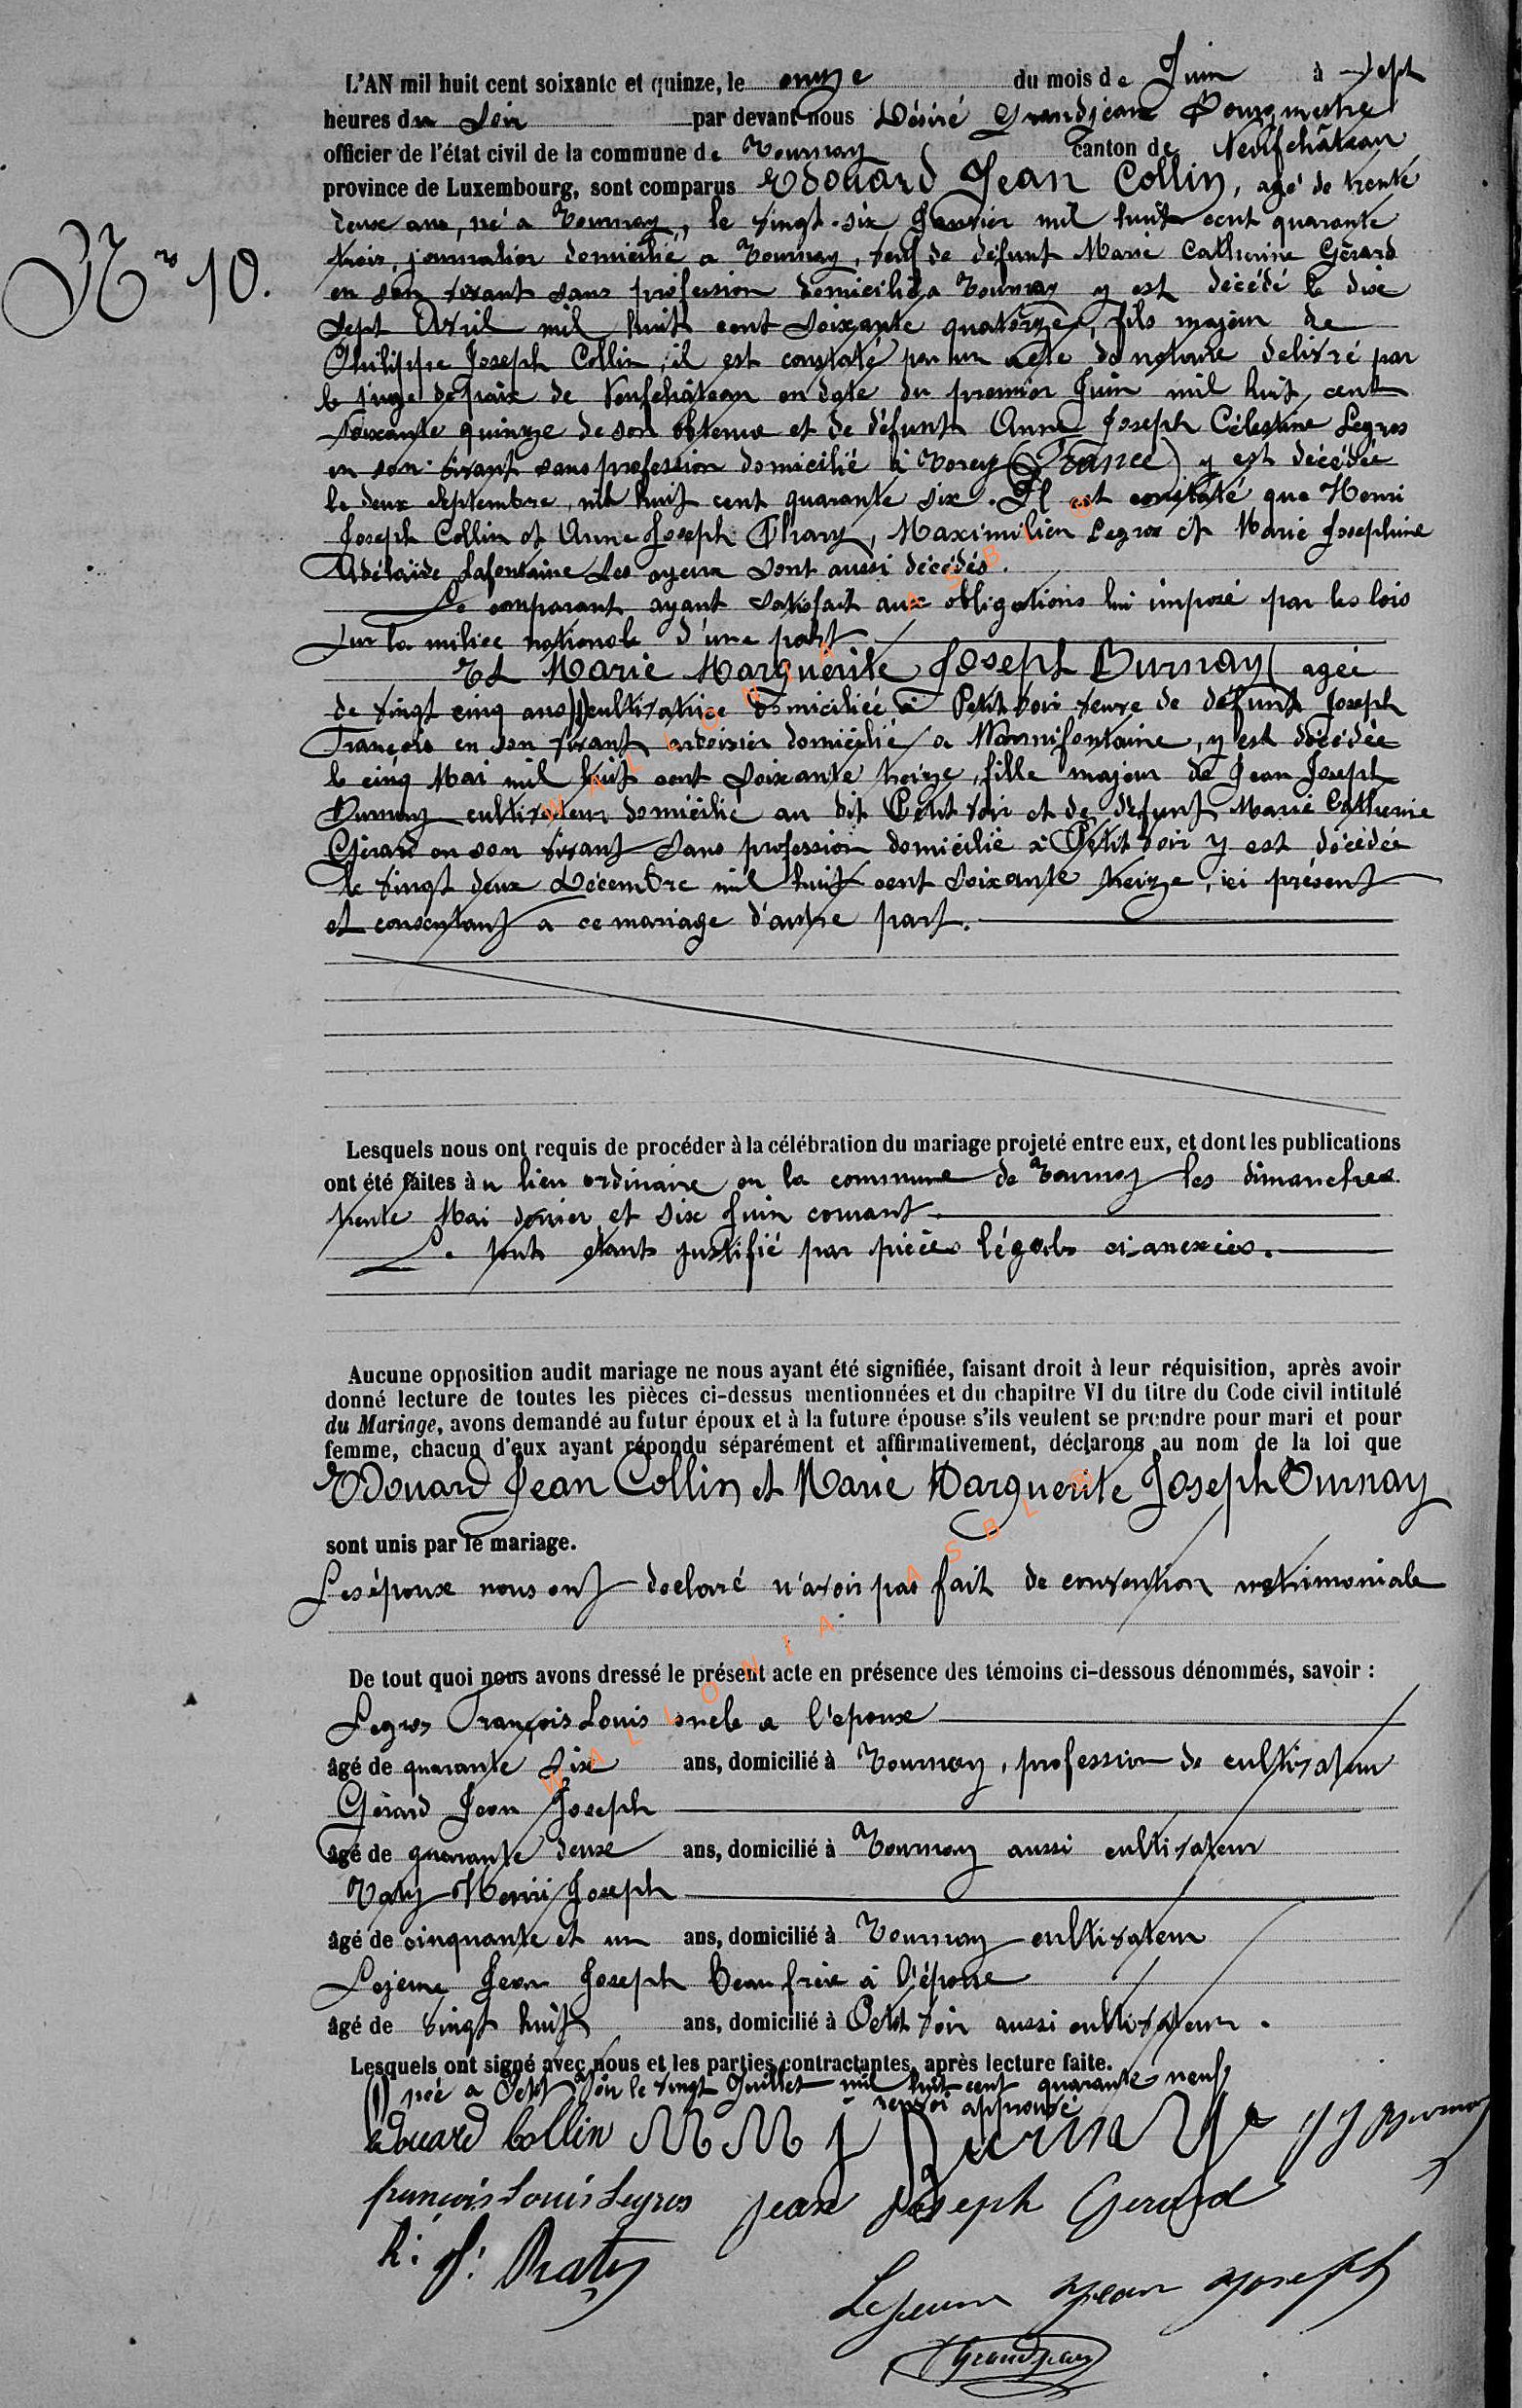 L'AN mil huit cent soixante et quinze, le onze du mois de Juin à Sept
heures du Soir par devant nous Désiré Grandjean Bourgmestre
officier de l'état civil de la commune de Tournay canton de Neufchâteau
province de Luxembourg, sont comparus Edouard Jean Collin, agé de trente
deux ans, né a Tournay, le vingt-six Janvier mil huit cent quarante
N° 10.
trois, journalier domicilié a Tournay, veuf de défunt Marie Catherine Gérard
en son vivant sans profession domicilié a Tournay y est décédé le dixe
Sept Avril mil huit cent Soixante quatorze, fils majeur de
Philippe Joseph Collin, il est constaté par un acte de notoire delivré par
le Juge de paix de Neufchâteau en date du premier Juin mil huit cent
Soixante quinze de son obtenue et de défunt Anne Joseph Célestine Legros
en son vivant sans profession domicilié à (France) y est décédée
le deux Septembre, mil huit cent quarante six. Il est constaté que Henri
Joseph Collin et Anne Joseph Thary, Maximilien Legros et Marie Josephine
Adélaïde Lafontaine Les ayeux sont aussi décédés.
Le comparant ayant Satisfait aux obligations lui imposé par les lois
Sur la milice nationale d'une part
Et Marie Marguerite Joseph Burnay agée
de vingt cinq ans (1) cultivatrice domiciliée à Petit voir veuve de défunt Joseph
François en son vivant ardoisier domicilié a Warmifontaine, y est décédée
le cinq Mai mil huit cent Soixante treize, fille majeur de Jean Joseph
Burnay cultivateur domicilié au dit Petit voir et de défunt Marie Catherine
Gérard en son vivant Sans profession domicilié à Petit voir y est décédée
le vingt deux Décembre mil huit cent Soixante treize, ici présent
et consentant a ce mariage d'autre part.
Lesquels nous ont requis de procéder à la célébration du mariage projeté entre eux, et dont les publications
ont été faites au lieu ordinaire en la commune de Tournay les dimanches
trente Mai denier et six Juin courant.
Le tout étant justifié par pièces légales ci-anexées.
Aucune opposition audit mariage ne nous ayant été signifiée, faisant droit à leur réquisition, après avoir
donné lecture de toutes les pièces ci-dessus mentionnées et du chapitre VI du titre du Code civil intitulé
du Mariage, avons demandé au futur époux et à la future épouse s'ils veulent se prendre pour mari et pour
femme, chacun d'eux ayant répondu séparément et affirmativement, déclarons au nom de la loi que
Edouard Jean Collin et Marie Marguerite Joseph Burnay
sont unis par le mariage.
Les époux nous ont declaré n'avoir pas fait de convention matrimoniale
De tout quoi nous avons dressé le présent acte en présence des témoins ci-dessous dénommés, savoir :
Legros François Louis oncle a l'epoux
âgé de quarante six ans, domicilié à Tournay, profession de cultivateur
Gérard Jean Joseph
âgé de quarante deux ans, domicilié à Tournay aussi cultivateur
Henri Joseph
âgé de cinquante et un ans, domicilié à Tournay cultivateur
Lejeune Jean Joseph beau frère à l'épouse
âgé de vingt huit ans, domicilié à Petit voir aussi cultivateur.
Lesquels ont signé avec nous et les parties contractantes, après lecture faite.
(1) née a Petit voir le vingt Juillet mil huit cent quarante neuf
renvoi approuvé
Edouard Collin M M J Burnay J J Burnay
françois Louis Legros jean joseph Gerard
h: J:
Lejeune Jean Joseph
Grandjean
WALLONIA ASBL ®
WALLONIA ASBL ®